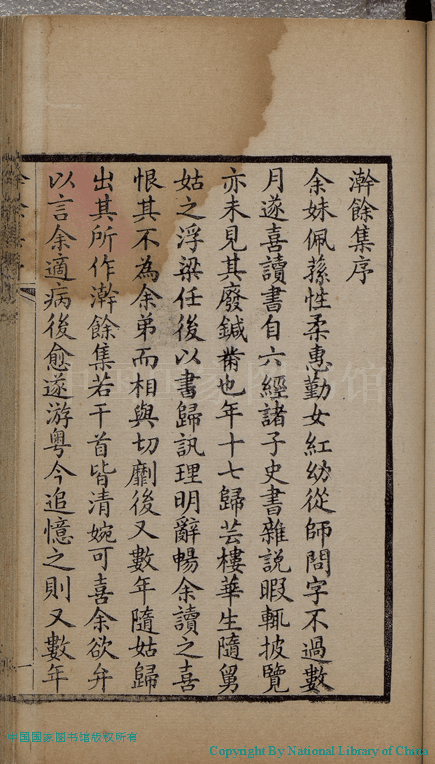 澣餘集序
余妹佩蓀性柔惠勤女紅幼從師問字不過數
月遂喜讀書自六經諸子史書雜說暇輒披覽
亦未見其廢鍼黹也年十七歸芸樓華生隨舅
姑之浮梁任後以書歸訊理明辭暢余讀之喜
恨其不為余弟而相與切劘後又數年隨姑歸
出其所作澣餘集若干首皆清婉可喜余欲弁
以言余適病後愈遂游粵今追憶之則又數年
一
中国国家图书馆版权所有
Copyright By National Library of China